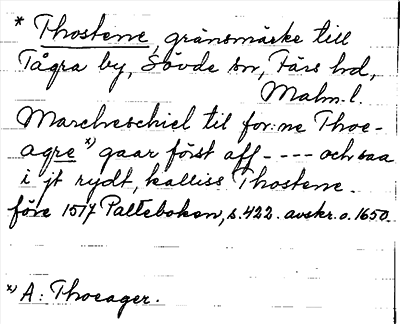 * Thostene, gränsmärke till
Tågra by, Sövde sn, Färs hd,
Malm. l.
Marcheschiel til for:ne Thoe-
agre x) gaar först aff - - - - och saa
i jt rydt, kalliss Thostene.
före 1517 Palteboken, s. 422. avskr. o. 1650.
x) A: Thoeager.